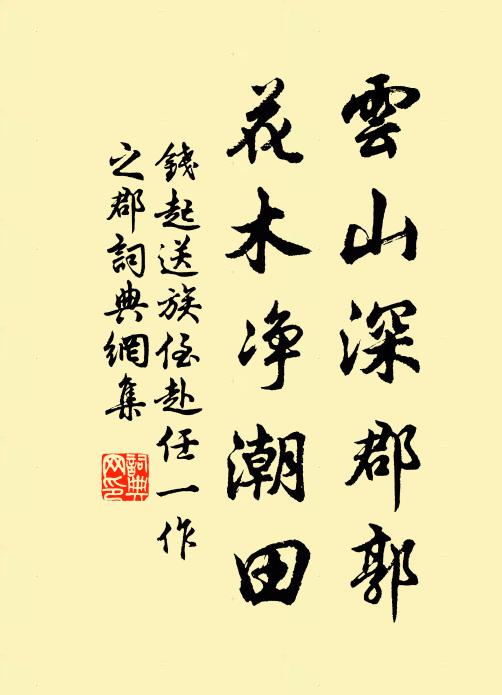 雲山深郡郭
花木净潮田
錢起送族侄赴任一作
之郡詞典網集
詞典網印